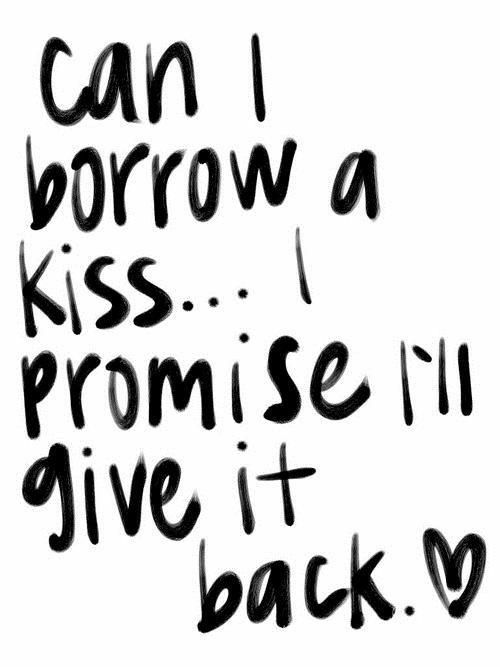 can I
borrow a
kiss... I
promise I'll
give it
back.♡